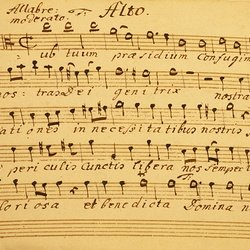 Allabre:
moderato.
Alto.
ub tuum præsidium Confugim
nos: tras Dei genitrix nostra
ati ones in necessitatibus nostris
periculis Cunctis libera nos semper
lori osa et benedicta Domina n